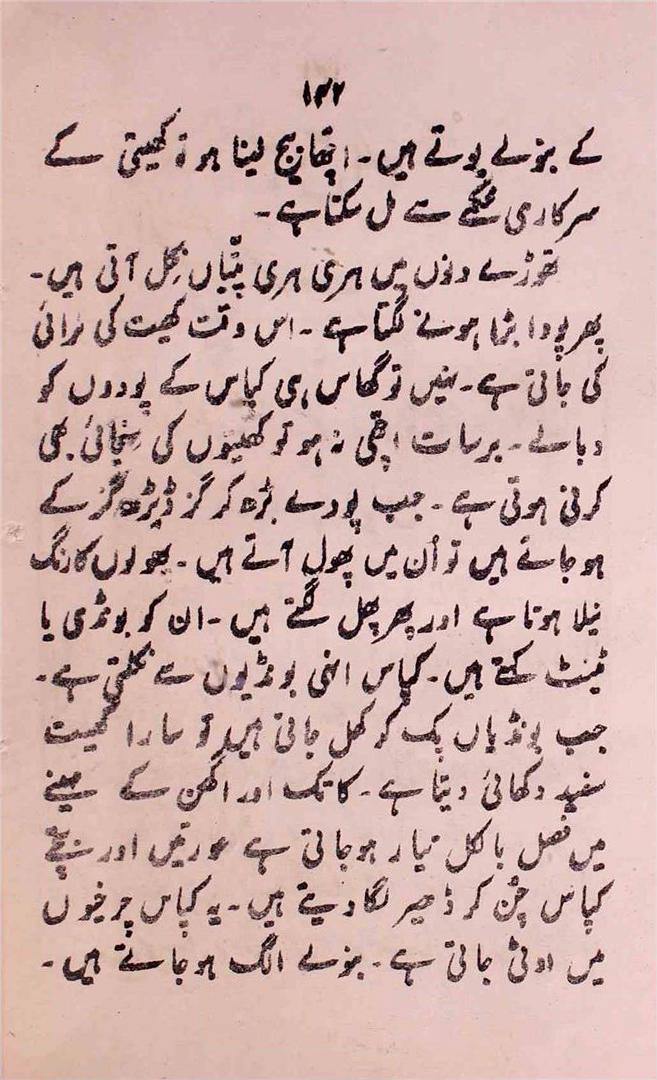 ۱۴۲
کے بنولے بوتے ہیں۔ اچھا بیج لینا ہو تو کھیتی کے
سرکاری محکمے سے مل سکتا ہے۔
تھوڑے دنوں میں ہری ہری پتّیاں نکل آتی ہیں۔
پھر پودا بڑا ہونے لگتا ہے۔ اس وقت کھیت کی نرائی
کی جاتی ہے۔ نہیں تو گھاس ہی کپاس کے پودوں کو
دبا لے۔ برسات اچھی نہ ہو تو کھیتوں کی سنچائی بھی
کرنی ہوتی ہے۔ جب پودے بڑھ کر گز ڈیڑھ گز کے
ہو جاتے ہیں تو اُن میں پھول آتے ہیں۔ پھولوں کا رنگ
نیلا ہوتا ہے اور پھر پھل لگتے ہیں۔ ان کو بونڈی یا
ٹینٹ کہتے ہیں۔ کپاس انہی بونڈیوں سے نکلتی ہے۔
جب بونڈیاں پک کر کھل جاتی ہیں تو سارا کھیت
سفید دکھائی دیتا ہے۔ کاتک اور اگھن کے مہینے
میں فصل بالکل تیار ہو جاتی ہے عورتیں اور بچّے
کپاس چُن کر ڈھیر لگا دیتے ہیں۔ یہ کپاس چرخیوں
میں اوٹی جاتی ہے۔ بنولے الگ ہو جاتے ہیں۔